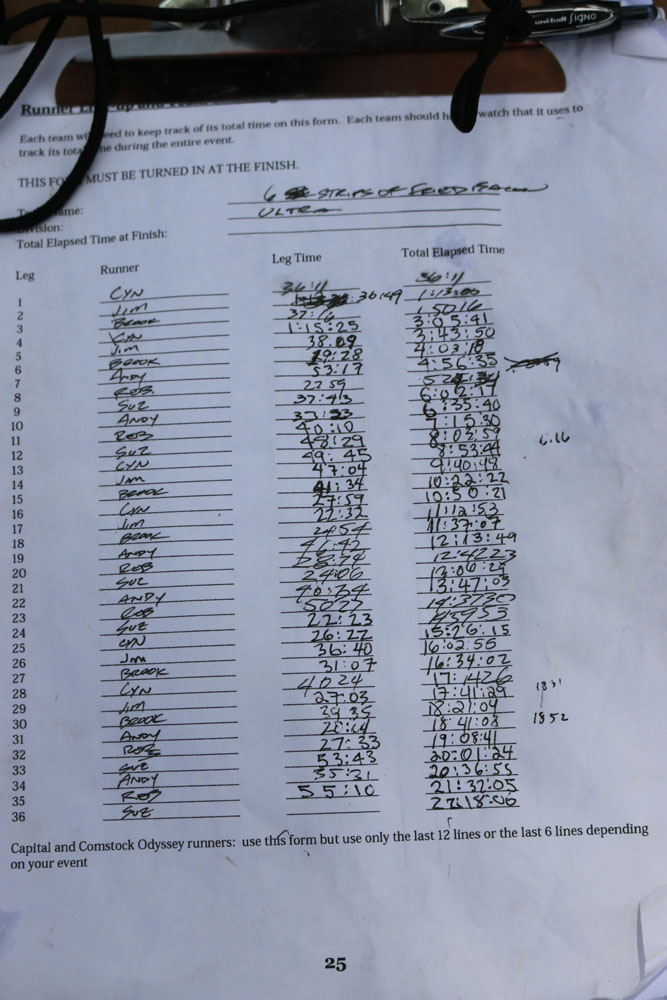 uni-ball SIGNO
Runner
Each team eed to keep track of its total time on this form. Each team should h watch that it uses to
track its tota ne during the entire event.
THIS FO MUST BE TURNED IN AT THE FINISH.
ame: 6 STRIPS OF
ision: ULTRA
Total Elapsed Time at Finish:
Leg Runner Leg Time Total Elapsed Time
1 CYN 36:11 36:11
2 JIM 36:49 1:13:00
3 BROOK 37:16 1:50:16
4 CYN 1:15:25 3:05:41
5 JIM 38:09 3:43:50
6 BROOK 19:28 4:03:18
7 ANDY 53:17 4:56:35
8 ROB 27:59 5:24:34
9 SUZ 37:43 6:02:17
10 ANDY 33:23 6:35:40
11 ROB 40:10 7:15:30
12 SUZ 48:29 8:02:59 6.16
13 CYN 49:45 8:53:44
14 JIM 47:04 9:40:48
15 BROOK 41:34 10:22:22
16 CYN 27:59 10:50:21
17 JIM 22:32 11:12:53
18 BROOK 2454 11:37:07
19 ANDY 12:13:49
20 ROB 12:4223
21 SUZ 24:06
22 ANDY 40:34 13:47:03
23 ROB 5027 14:3730
24 SUZ 22:23
25 CYN 26:22 15:26:15
26 JIM 36:40 16:02:55
27 BROOK 31:07 16:34:02
28 CYN 4024 17:1426
29 JIM 27:03 17:41:29
30 BROOK 39 35 18:21:04 1852
31 ANDY 18:41:08
32 ROB 27:33 19:08:41
33 SUZ 53:43 20:01:24
34 ANDY 35:31 20:36:55
35 ROB 55:10 21:32:05
36 SUZ 22:18:06
Capital and Comstock Odyssey runners: use this form but use only the last 12 lines or the last 6 lines depending
on your event
25